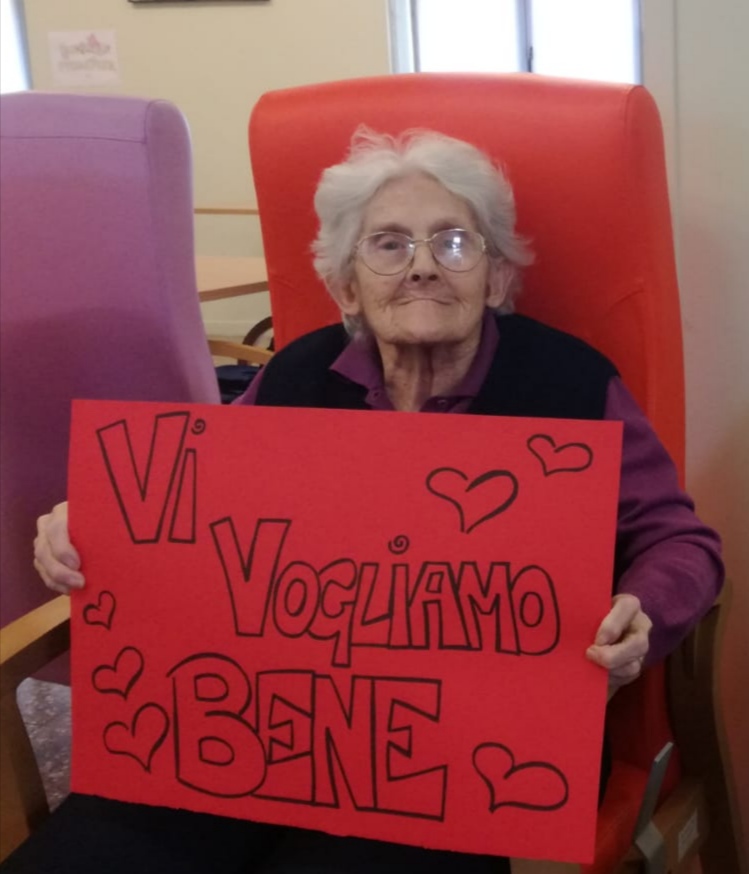 Vi
VOGLIAMO
BENE